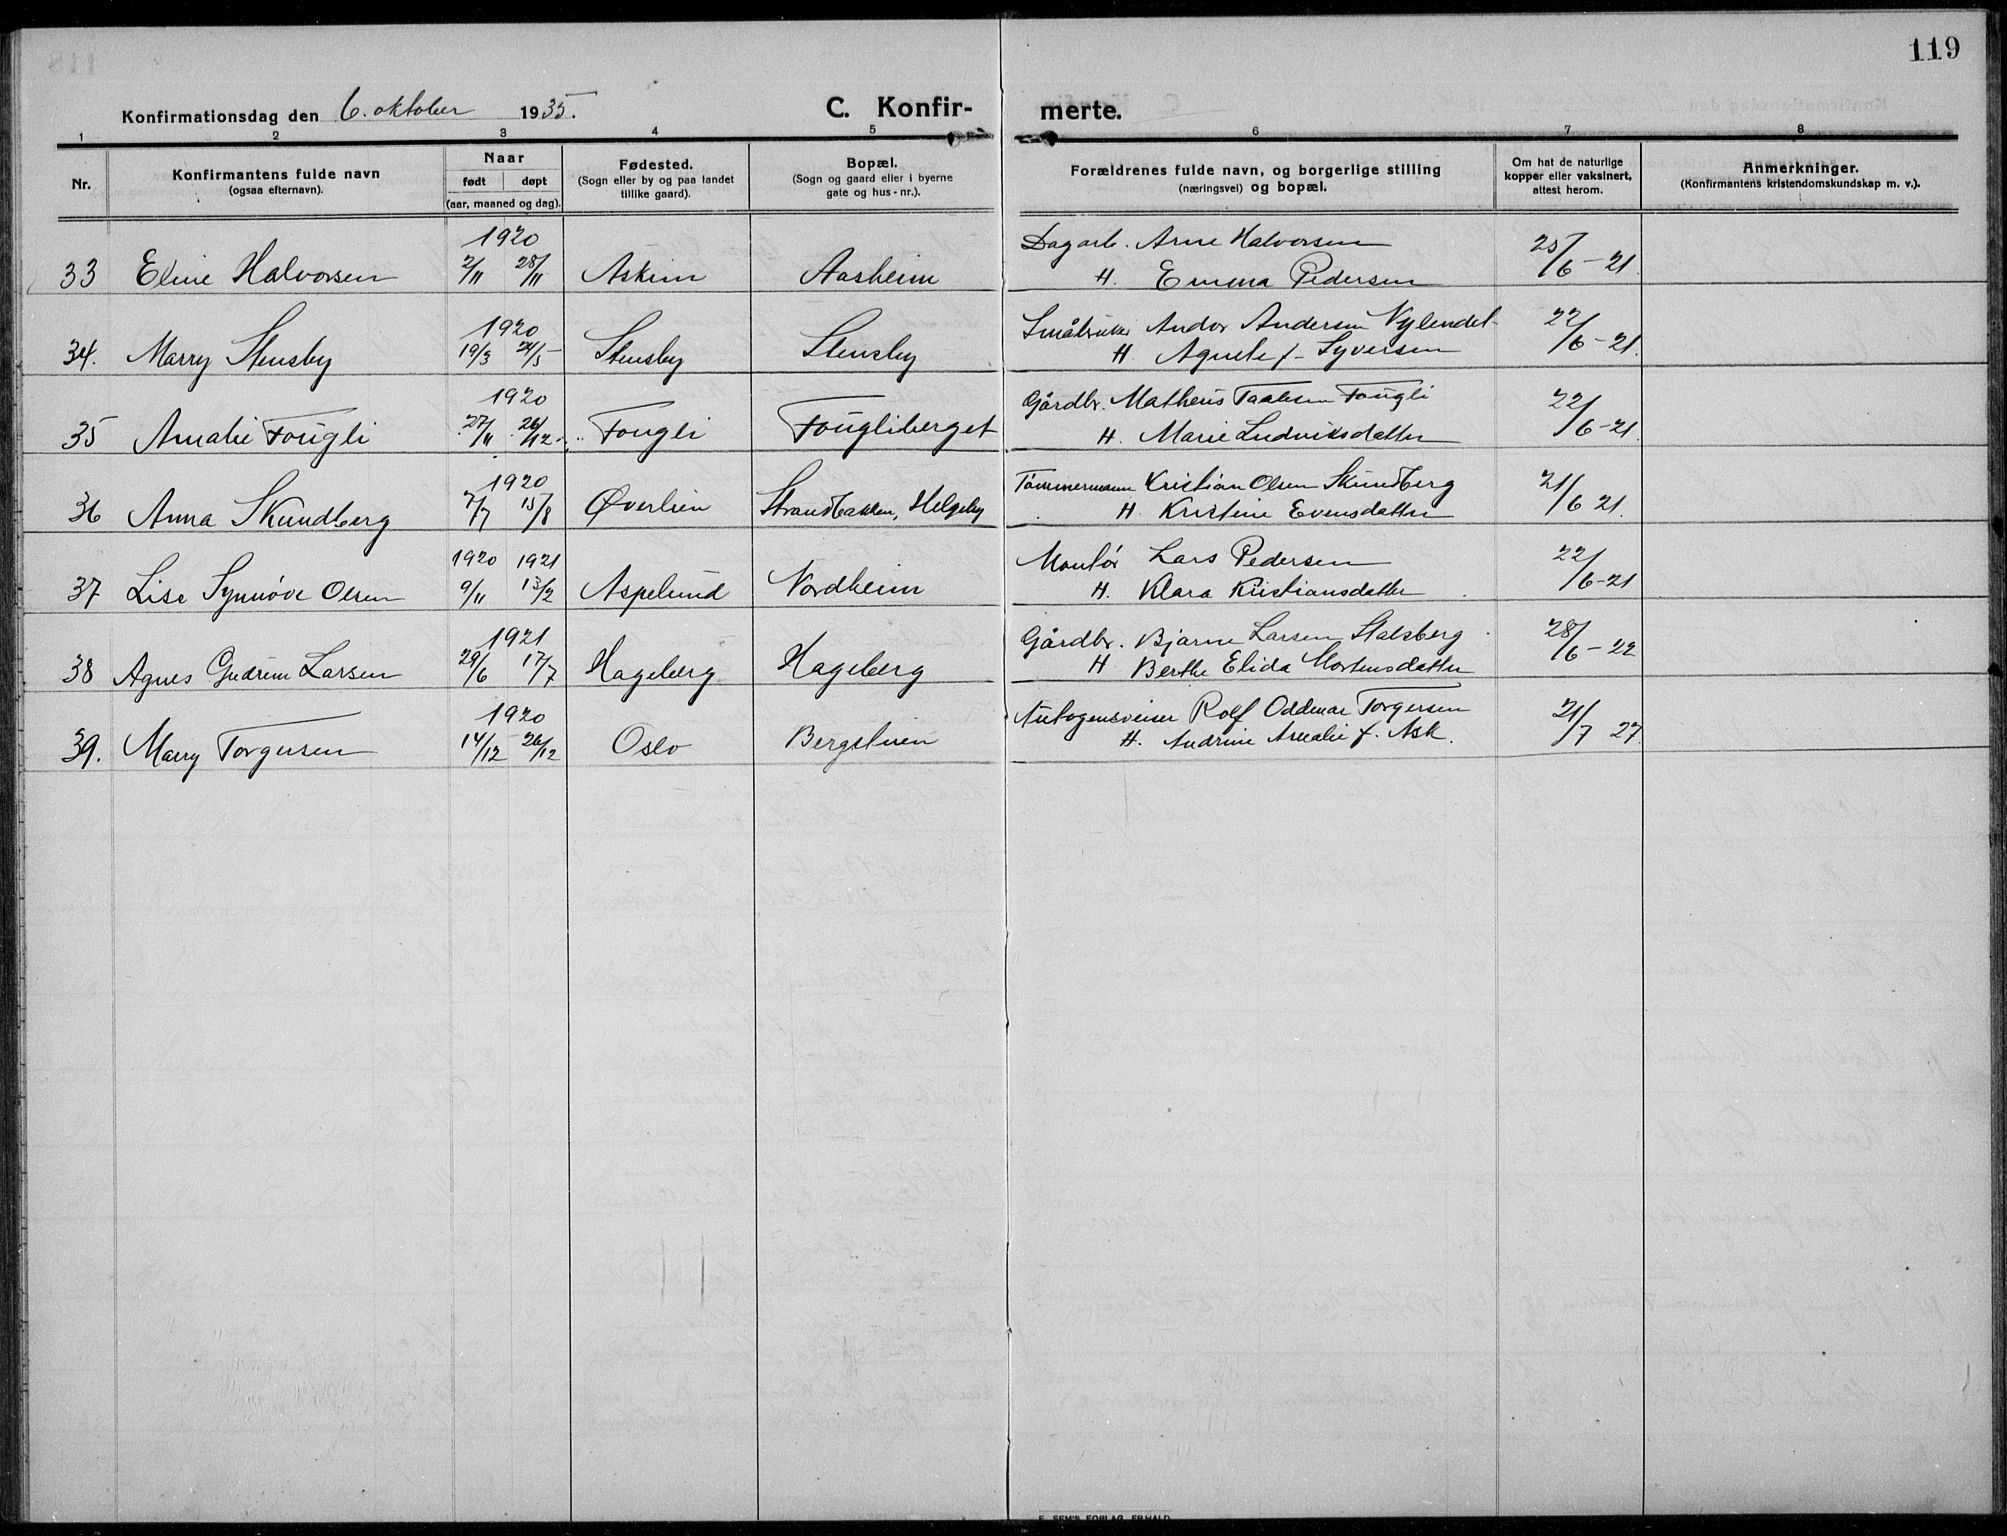 119
Konfirmationsdag den 6. oktober 1935.
C. Konfir- merte.
1 2 3 4 5 6 7 8
Nr.
Konfirmantens fulde navn
(ogsaa efternavn).
Naar
født døpt
(aar, maaned og dag).
Fødested.
(Sogn eller by og paa landet
tillike gaard).
Bopæl.
(Sogn og gaard eller i byerne
gate og hus-nr.).
Forældrenes fulde navn, og borgerlige stilling
(næringsvei) og bopæl.
Om hat de naturlige
kopper eller vaksinert,
attest herom.
Anmerkninger.
(Konfirmantens kristendomskundskap m. v.).
1920 Dagarb. Arne Halvorsen
33 Eline Halvorsen 2/11 28/11 Askim Aasheim H. Emma Pedersen 25/6-21.
1920 Småbruker Andor Andersen Nylendet
34. Marry Stensby 19/3 24/5 Stensby Stensby H. Agnete f. Syversen 22/6-21.
1920 Gårdbr. Matheus Taalesen Fougli
35 Amalie Fougli 27/11 26/12 Fougli Fougliberget H. Marie Ludviksdatter 22/6-21.
1920 Tømmermann Kristian Olsen Skundberg
36 Anna Skundberg 7/7 15/8 Øverlien Strandbakken, Helgeby H. Kristine Evensdatter 21/6 21.
1920 1921 Montør Lars Pedersen
37 Lise Synnøve Olsen 9/11 13/2 Aspelund Nordheim H. Klara Kristiansdatter 22/6-21
1921 Gårdbr. Bjarne Larsen Stalsberg
38 Agnes Gudrun Larsen 29/6 17/7 Hageberg Hageberg H Berthe Elida Mortensdatter 28/6-22
1920 Autogensveiser Rolf Oddmar Torgersen
39. Marry Torgersen 14/12 26/12 Oslo Bergstuen H. Andrine Amalie f. Ask. 21/7 27.
E. SEM'S FORLAG, FR.HALD